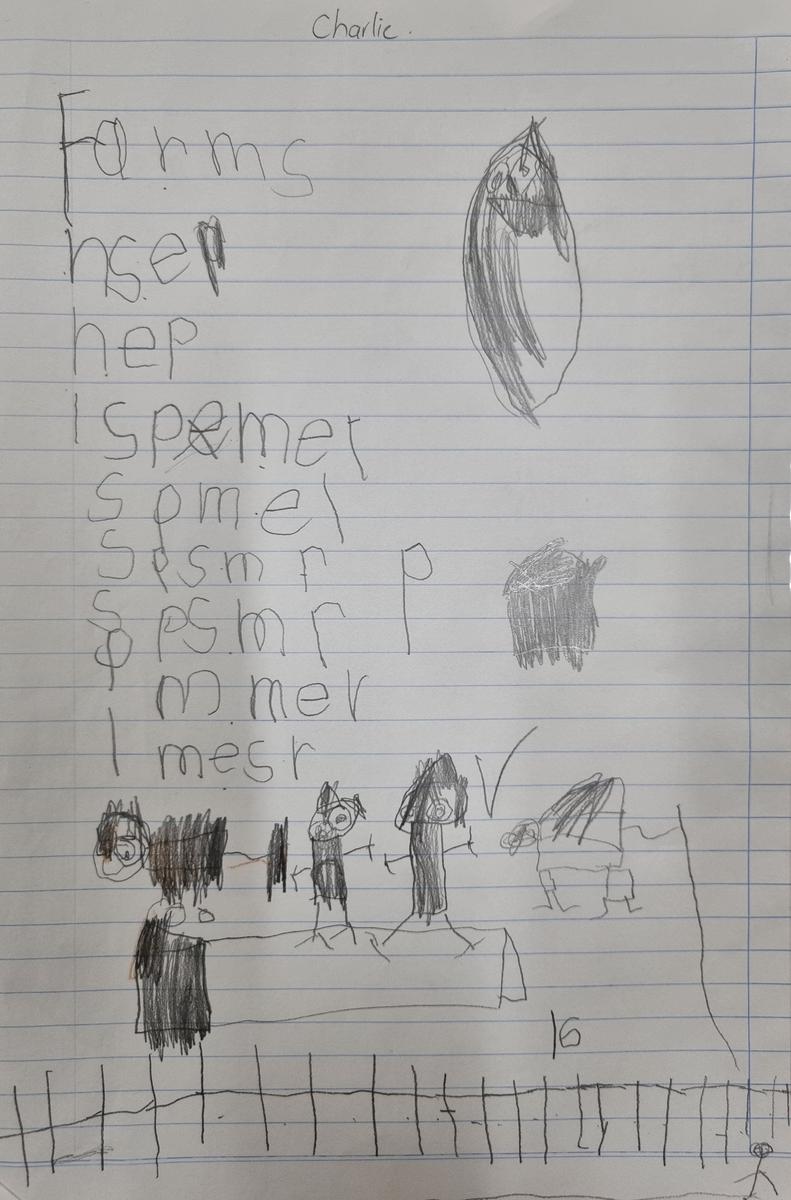 Charlie.
Farms
nsep
hep
I spemer
spmel
Spsmr p
s psmr
p m.mer
I mesr
16